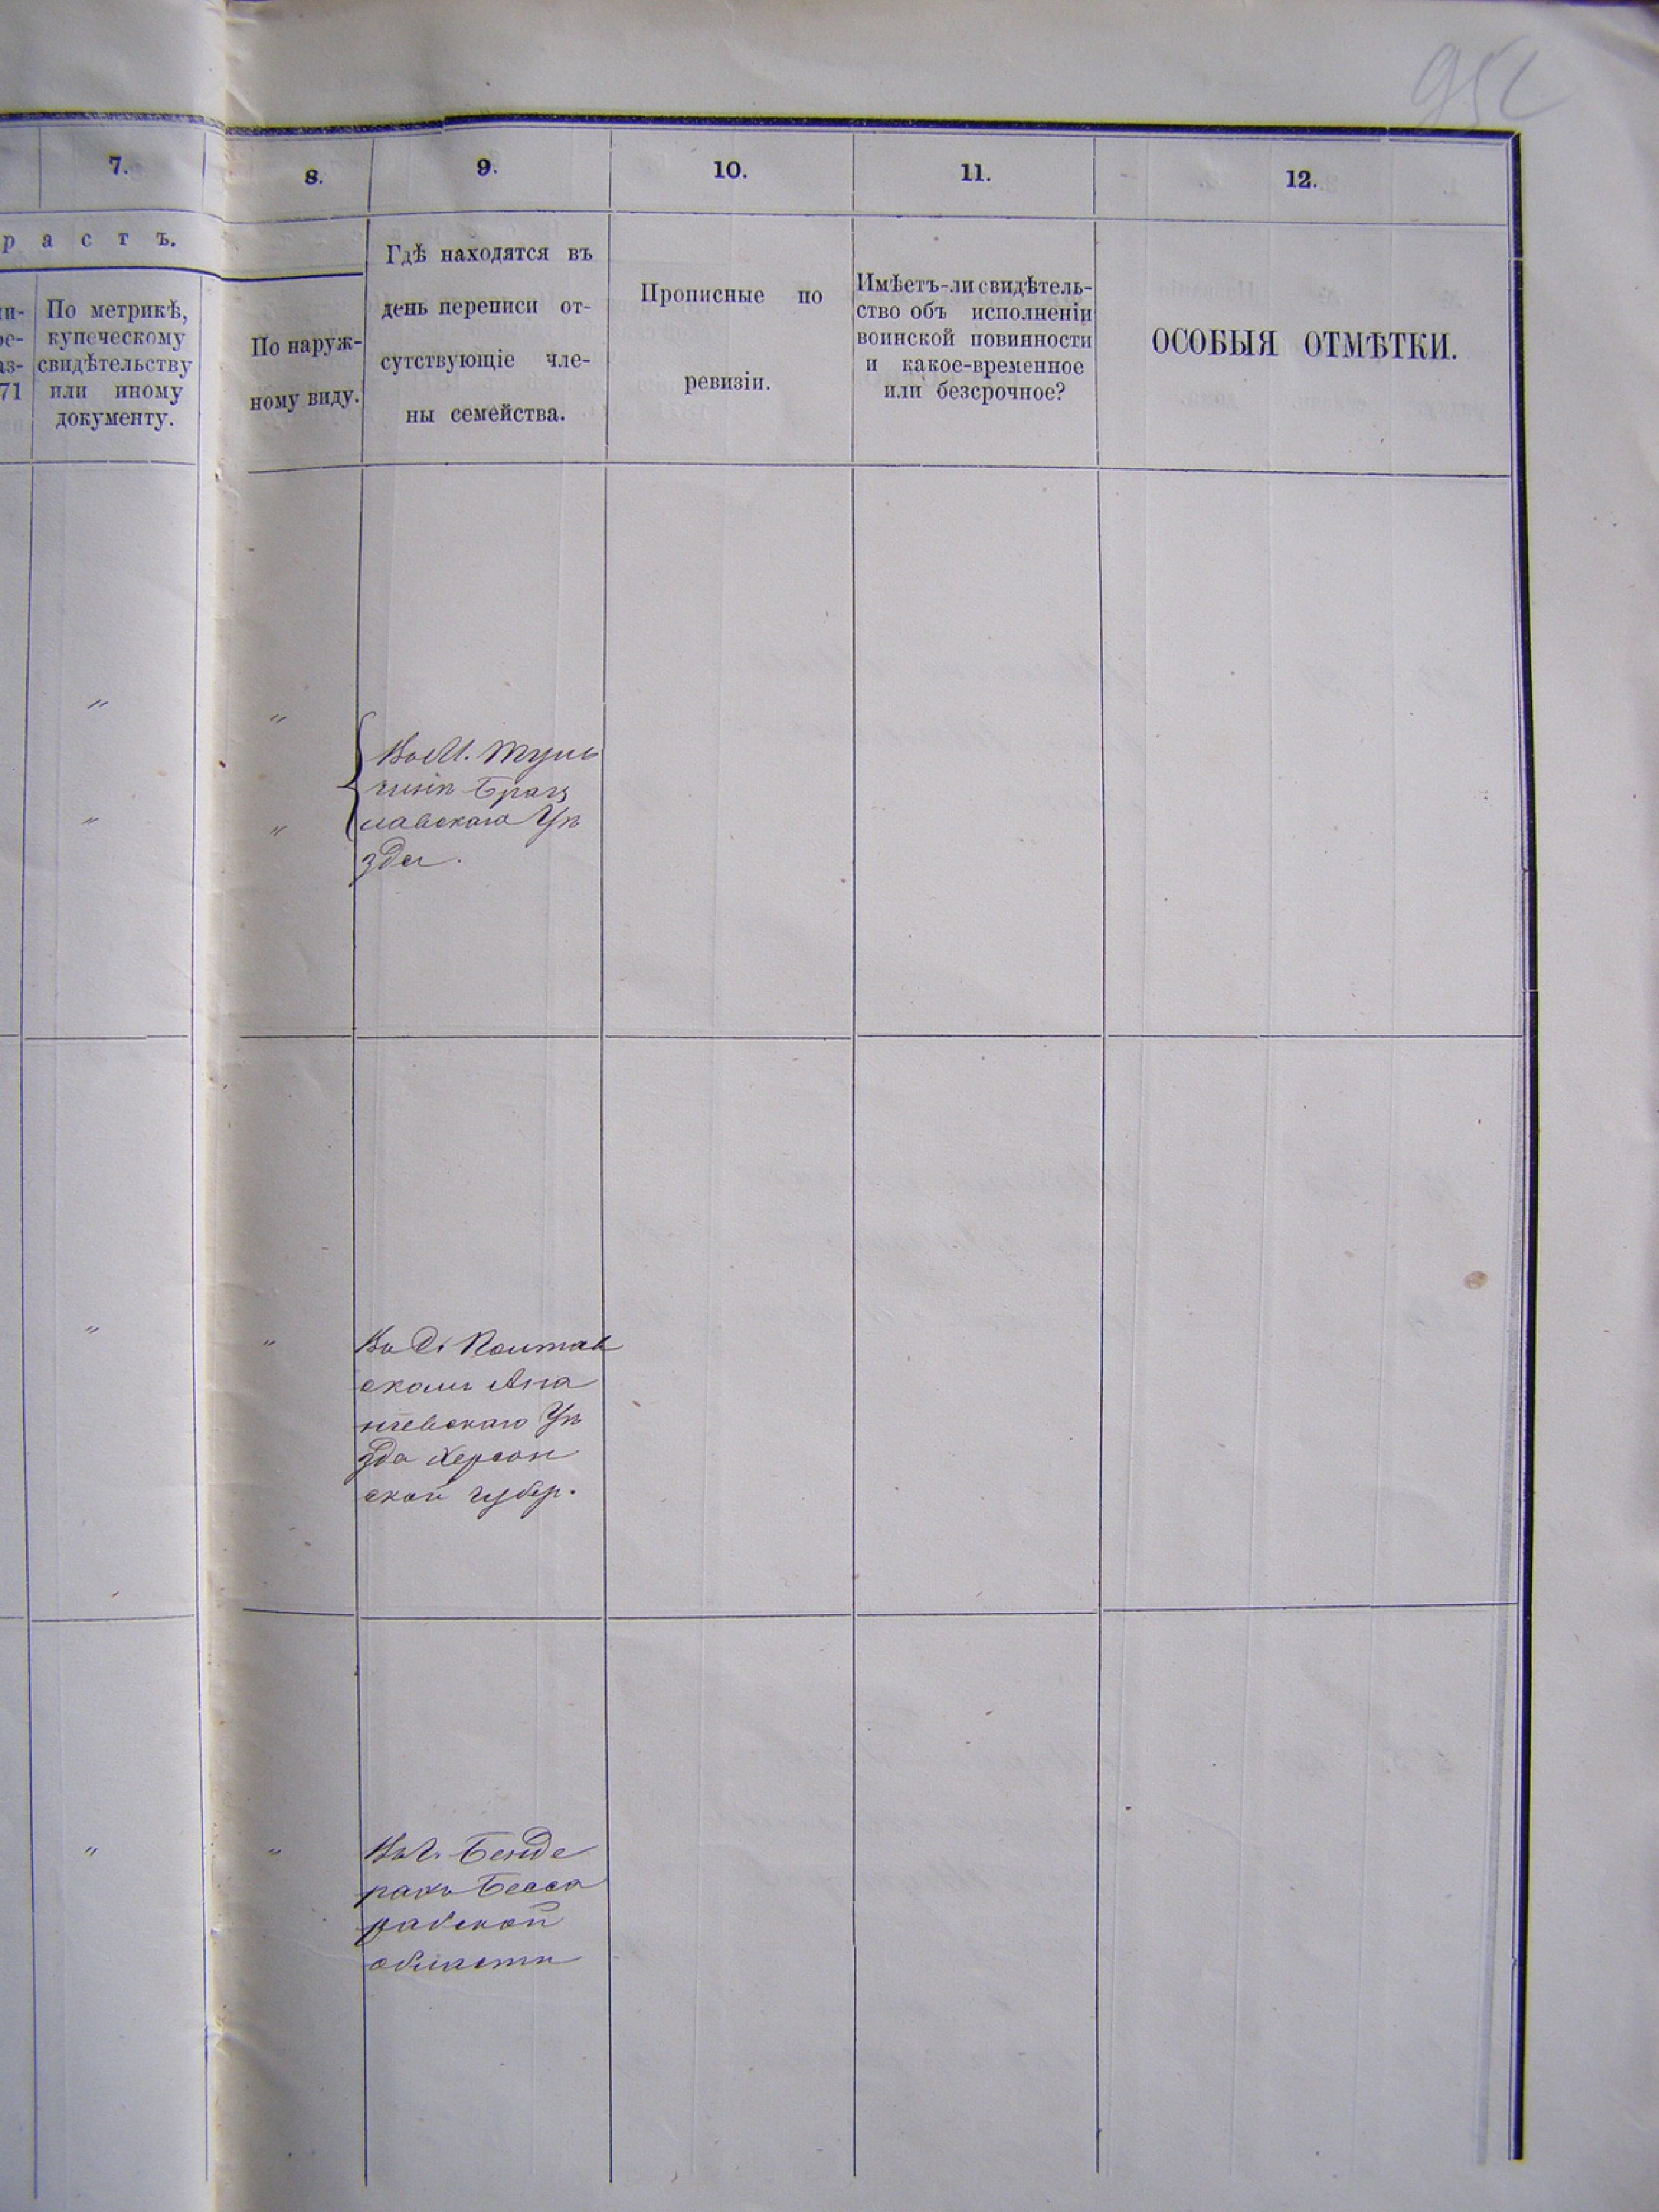 952
7.
8.
9.
10.
11.
12.
растъ.
71
По метрикѣ,
купеческому
свидѣтельству
или иному
документу.
По наруж-
ному виду.
Гдѣ находятся въ
день переписи от-
сутствующіе чле-
ны семейства.
Прописные по
ревизіи.
Имѣетъ-ли свидѣтель-
ство объ исполненіи
воинской повинности
и какое-временное
или безсрочное?
ОСОБЫЯ ОТМѢТКИ.
" "
Въ М. Туль
чинѣ Брац
" "
лавскаго Уѣ
зда.
" "
Въ С.
скомъ Ана
ніевскаго Уѣ
зда Херсон
ской губер.
" "
Въ г. Бенде
рахъ Бесса
рабской
области